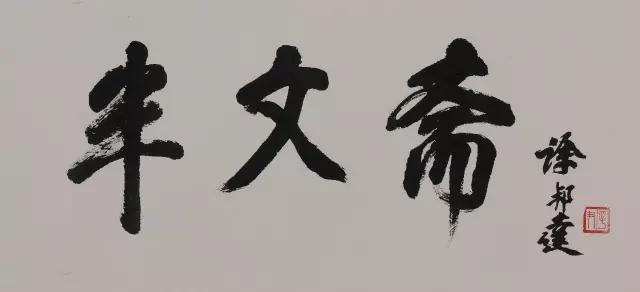 半文斋
徐邦達